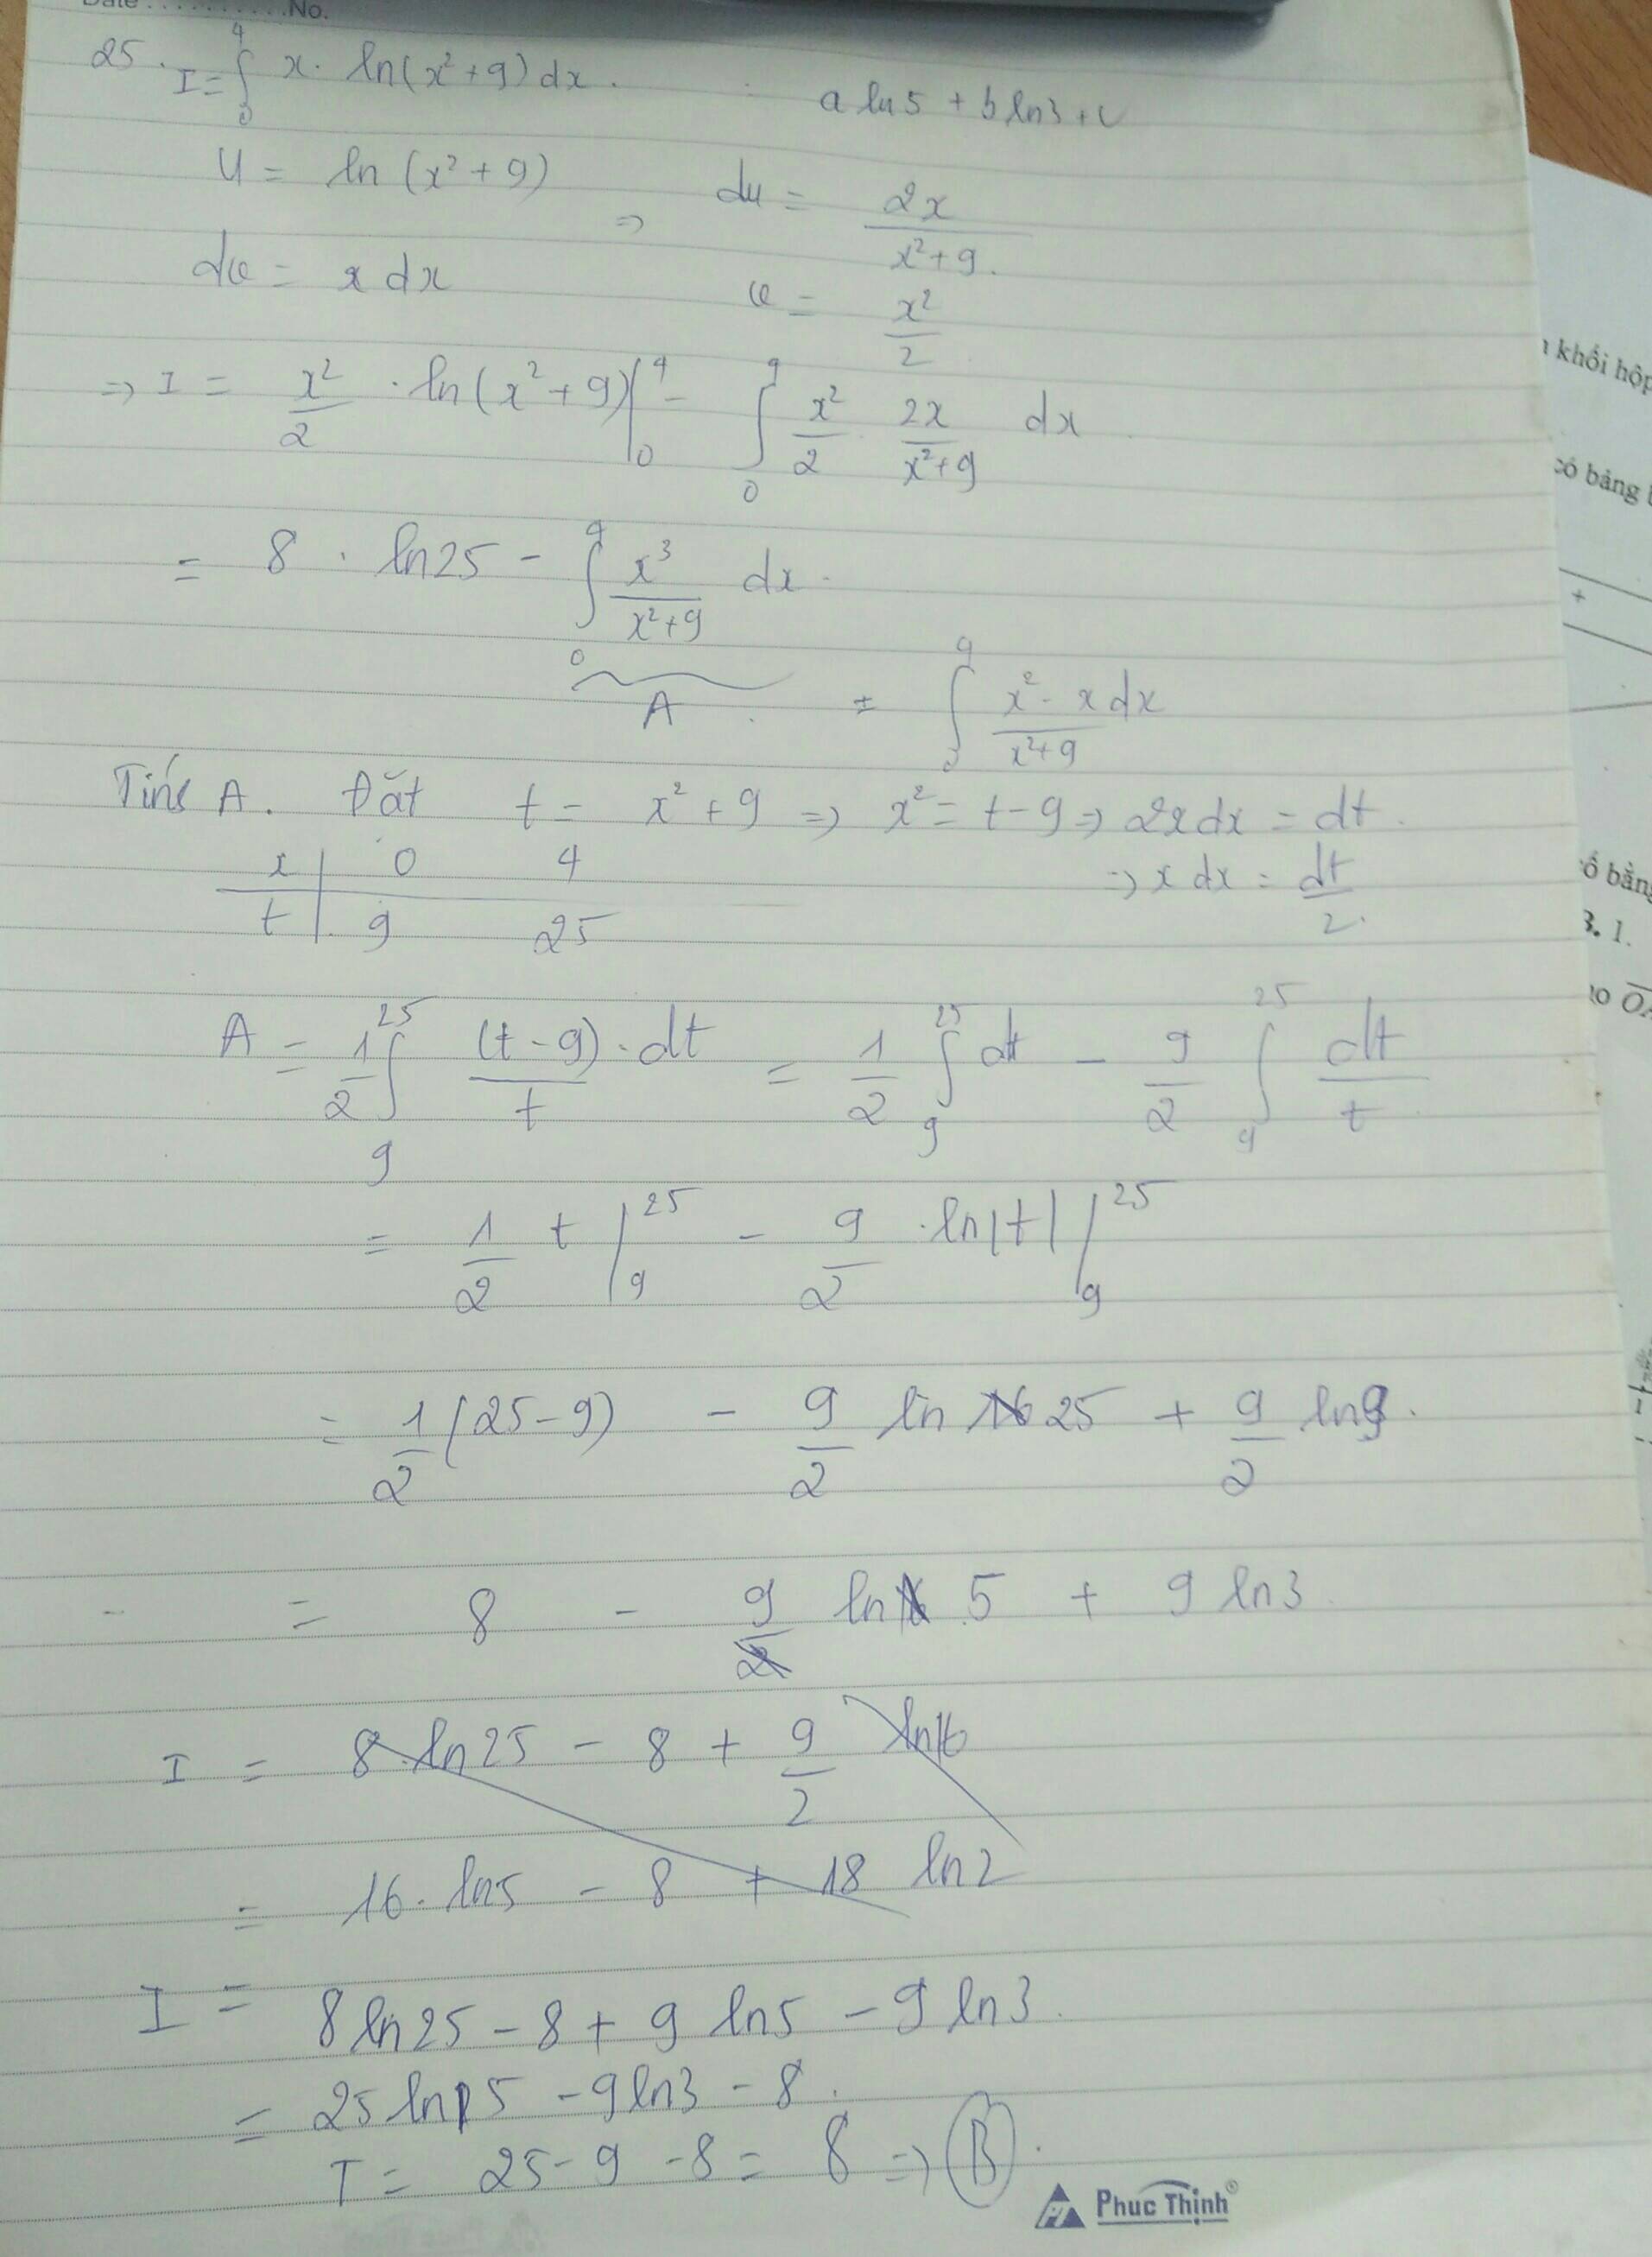 Date . . . . . . . . . . . No.
25. I = ∫₀⁴ x · ln(x² + 9) dx. a ln5 + b ln3 + c
u = ln(x² + 9) ⇒ du = 2x / (x² + 9).
dv = x dx v = x²/2
⇒ I = x²/2 · ln(x² + 9)|₀⁴ - ∫₀⁴ x²/2 2x/(x² + 9) dx
= 8 · ln25 - ∫₀⁴ x³/(x² + 9) dx.
A = ∫₀⁴ x² · x dx/(x² + 9)
Tính A. Đặt t = x² + 9 ⇒ x² = t - 9 ⇒ 2x dx = dt.
x | 0 4 ⇒ x dx = dt/2.
t | 9 25
A = 1/2 ∫₉²⁵ (t - 9) · dt / t = 1/2 ∫₉²⁵ dt - 9/2 ∫₉²⁵ dt/t
= 1/2 t |₉²⁵ - 9/2 · ln|t| |₉²⁵
= 1/2 (25 - 9) - 9/2 ln 25 + 9/2 ln9.
= 8 - 9 ln 5 + 9 ln3
I = 8 ln25 - 8 + 9/2 ln16
= 16 · ln5 - 8 + 18 ln2
I = 8 ln25 - 8 + 9 ln5 - 9 ln3.
= 25 ln 5 - 9 ln3 - 8.
T = 25 - 9 - 8 = 8 ⇒ B.
Phuc Thịnh®
khối hộp
có bảng
+
số bằng
3. 1.